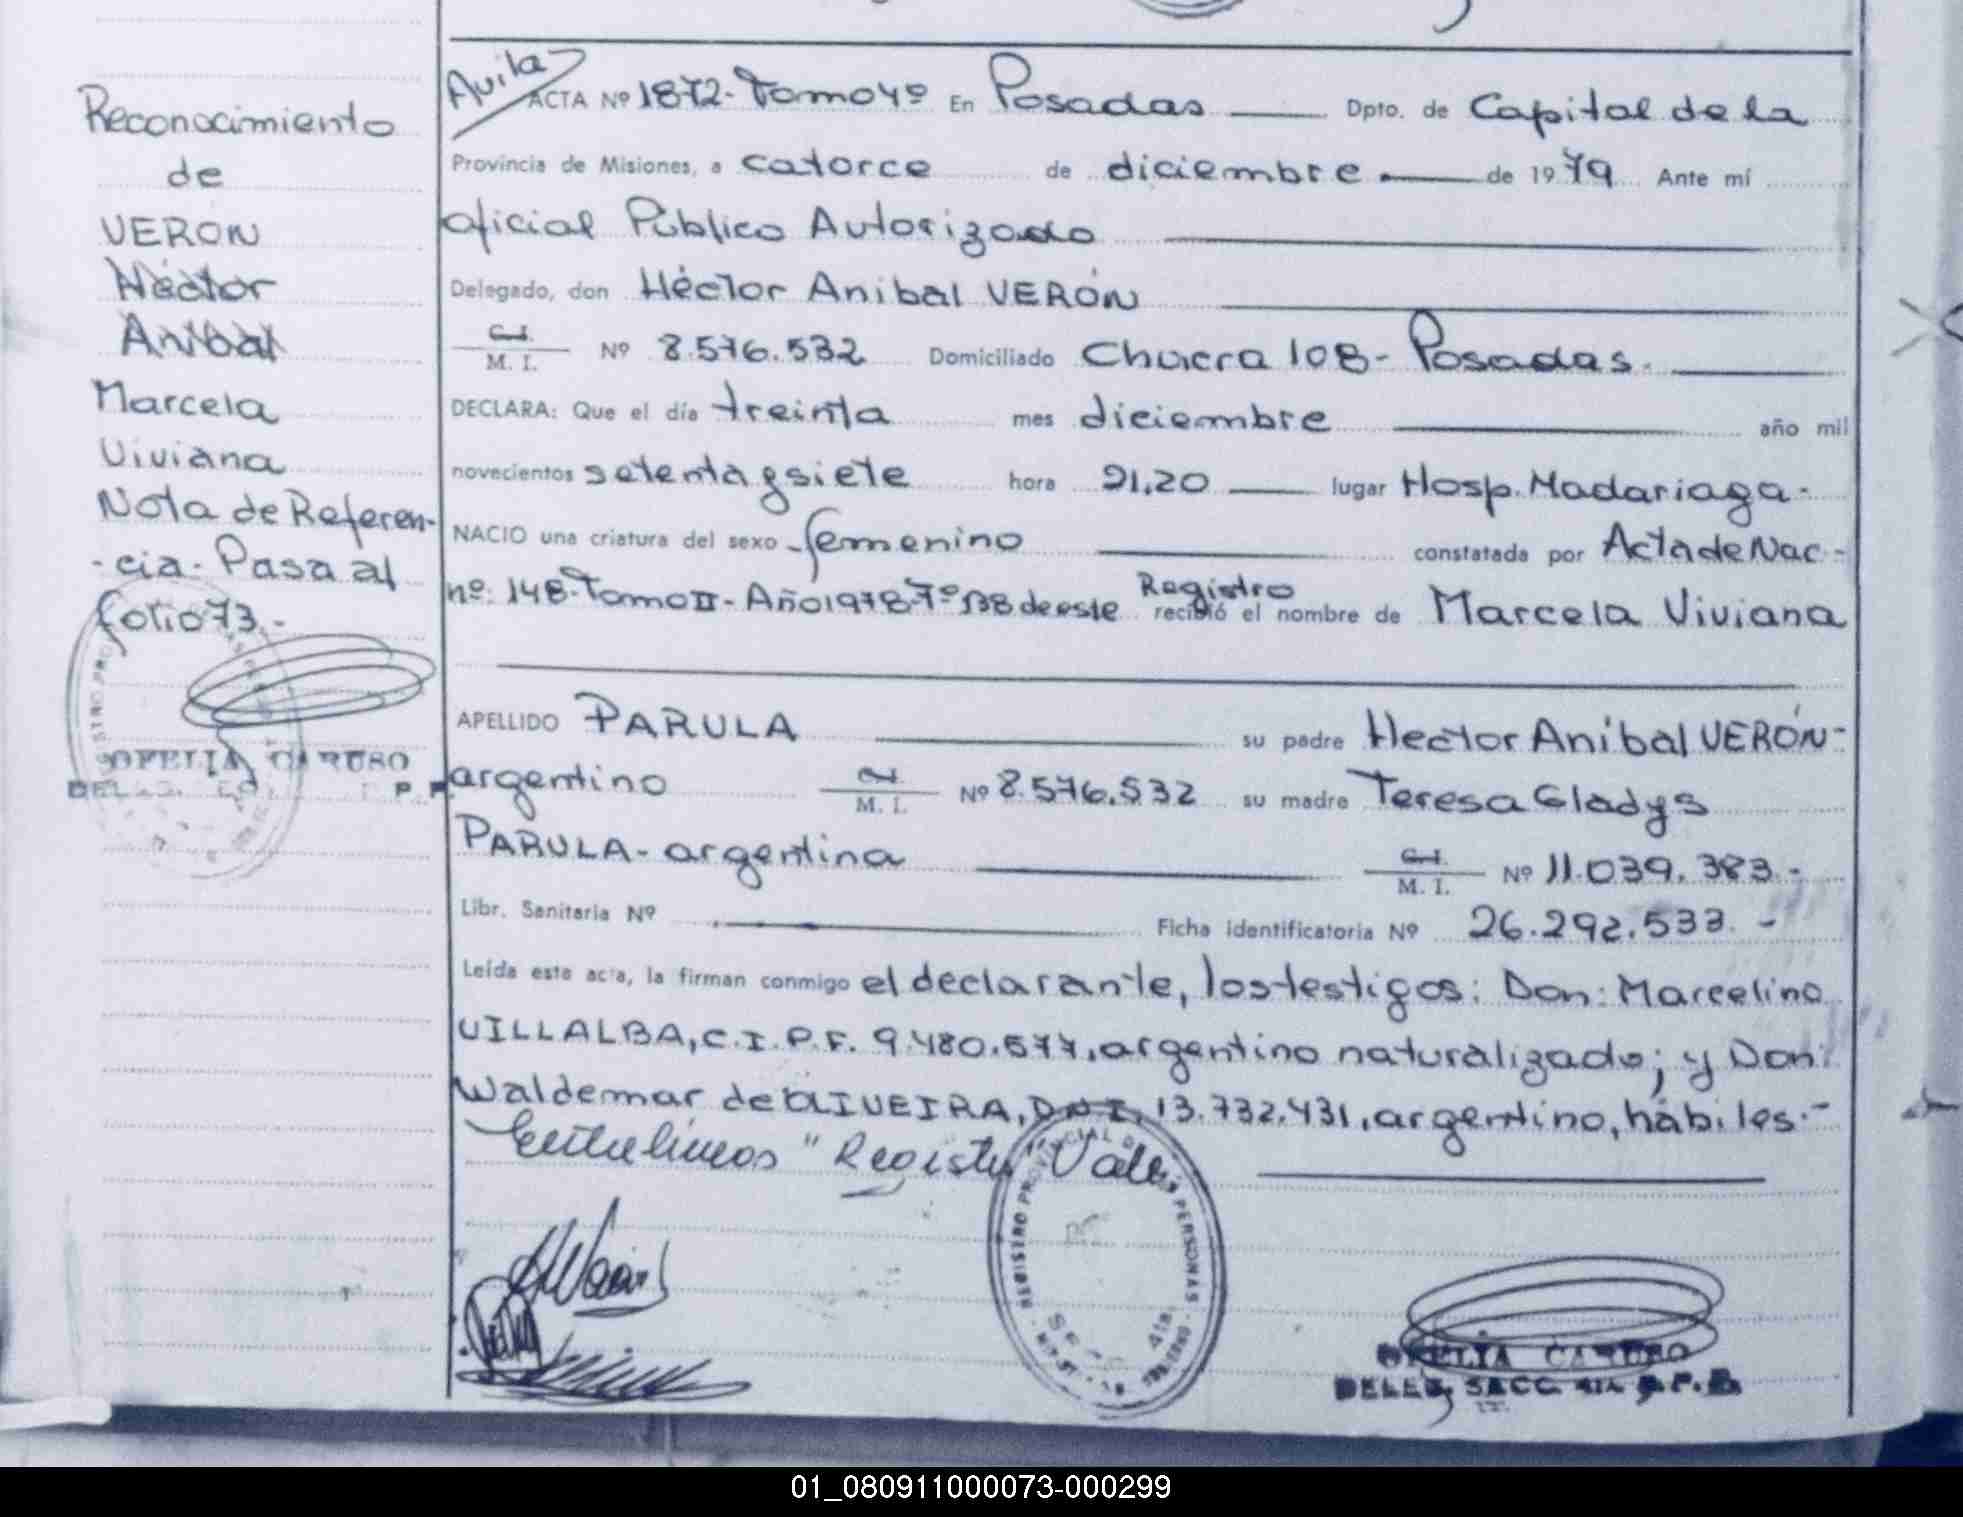 Reconocimiento
de
VERON
Héctor
Anibal
Marcela
Viviana
Nota de Referen-
-cia- Pasa al
folio 73.-
OFELIA CARUSO
Avila
ACTA Nº 1872- Tomo 4º En Posadas Dpto. de Capital de la
Provincia de Misiones, a catorce de diciembre de 1979 Ante mí
oficial Público Autorizado
Delegado, don Héctor Anibal VERÓN
C.I.
M. I. Nº 8.576.532 Domiciliado Chucra 108- Posadas.
DECLARA: Que el día treinta mes diciembre año mil
novecientos setenta y siete hora 21,20 lugar Hosp. Madariaga-
NACIO una criatura del sexo femenino constatada por Acta de Nac-
nº: 148- Tomo II- Año 1978- Fº 138 de este Registro recibió el nombre de Marcela Viviana
APELLIDO PARULA su padre Hector Anibal VERÓN-
argentino C.I. M. I. Nº 8.576.532 su madre Teresa Gladys
PARULA- argentina C.I. M. I. Nº 11.039.383.-
Libr. Sanitaria Nº Ficha identificatoria Nº 26.292.533.-
Leída este acta, la firman conmigo el declarante, los testigos: Don: Marcelino
VILLALBA, C.I.P.F. 9.480.577, argentino naturalizado; y Don:
Waldemar de OLIVEIRA, D.N.I. 13.732.431, argentino, hábiles.-
Entrelíneas "Registro" Vale
REGISTRO PROVINCIAL DE LAS PERSONAS
OFELIA CARUSO
01_080911000073-000299